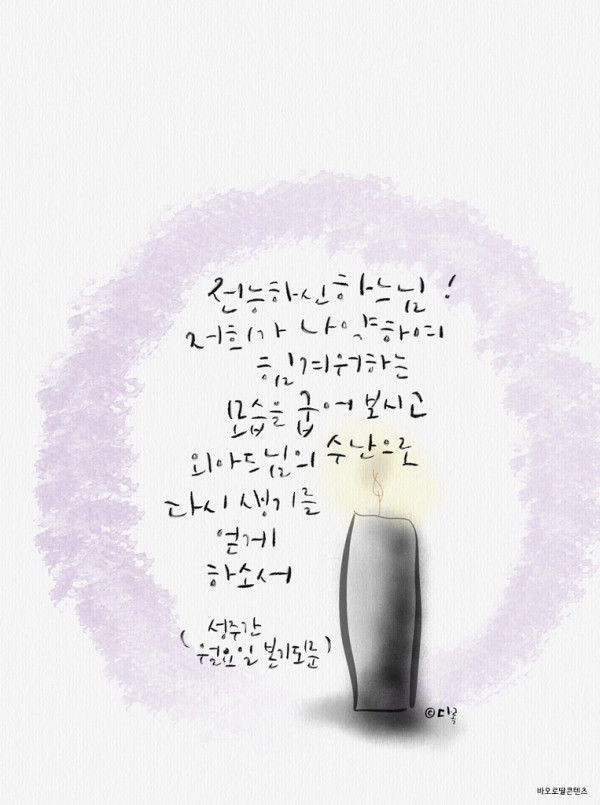 전능하신 하느님!
저희가 나약하여
힘겨워하는
모습을 굽어 보시고
외아드님의 수난으로
다시 생기를
얻게
하소서
(성주간
월요일 본기도문)
©다콕
바오로딸콘텐츠